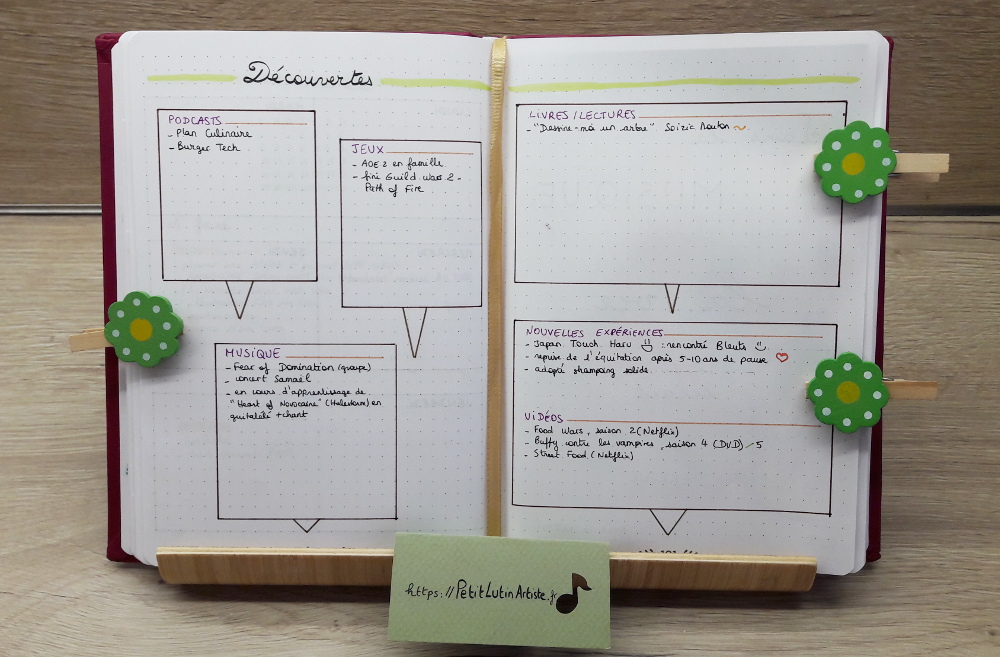 Découvertes
PODCASTS
- Plan Culinaire
- Burger Tech
JEUX
- AOE 2 en famille
- fini Guild Wars 2 -
Path of Fire
MUSIQUE
- Fear of Domination (groupe)
- concert Samaël
- en cours d'apprentissage de
"Heart of Novocaine" (Halestorm) en
guitalélé + chant
LIVRES / LECTURES
- "Dessine-moi un arbre" Soizic
NOUVELLES EXPÉRIENCES
- Japan Touch Haru : rencontré
- reprise de l'équitation après 5-10 ans de pause
- adopté shampoing solide
VIDÉOS
- Food Wars, saison 2 (Netflix)
- Buffy contre les vampires, saison 4 (DVD) / 5
- Street Food (Netflix)
https://PetitLutinArtiste.fr